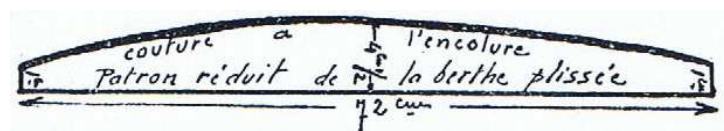 couture a l'encolure
Patron réduit de la berthe plissée
72 cm